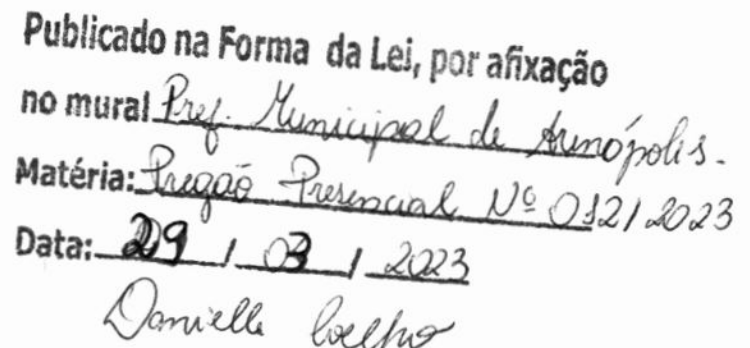 Publicado na Forma da Lei, por afixação
no mural Pref. Municipal de Arenópolis.
Matéria: Pregão Presencial Nº 012/2023
Data: 29 / 03 / 2023
Danielle Coelho